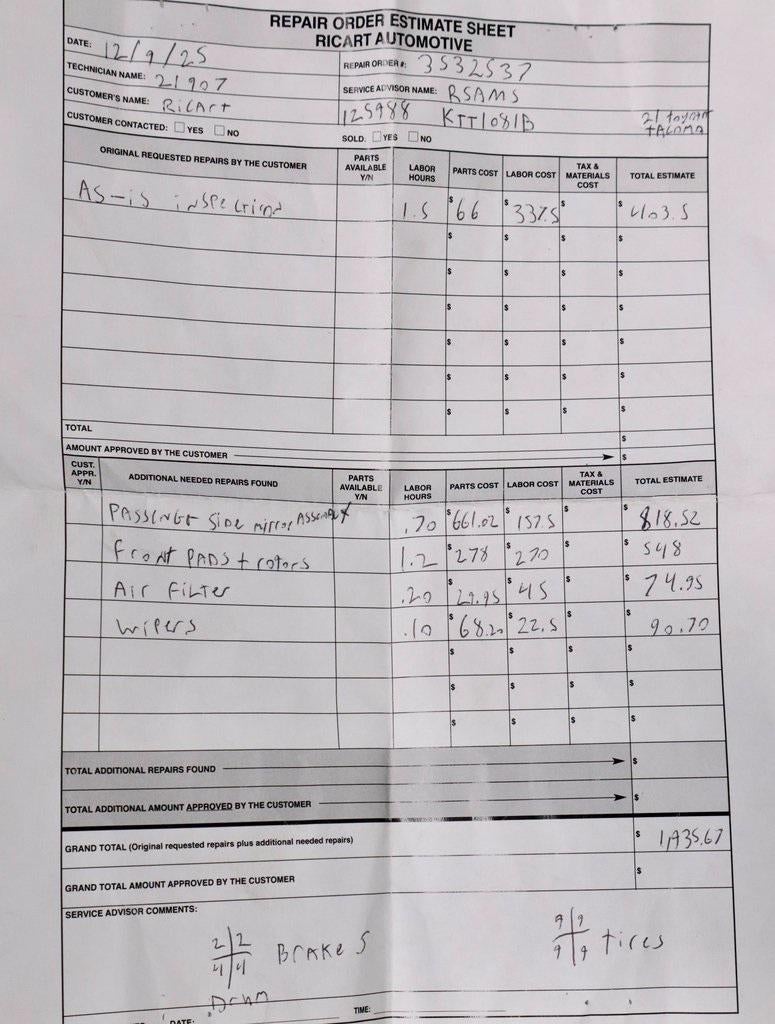 REPAIR ORDER ESTIMATE SHEET
RICART AUTOMOTIVE
DATE: 12/9/25 REPAIR ORDER#: 3532537
TECHNICIAN NAME: 21907 SERVICE ADVISOR NAME: RSAMS
CUSTOMER'S NAME: RicArt 125988 KTT1081B 21 toyota tAcoma
CUSTOMER CONTACTED: YES NO SOLD: YES NO
ORIGINAL REQUESTED REPAIRS BY THE CUSTOMER PARTS AVAILABLE Y/N LABOR HOURS PARTS COST LABOR COST TAX & MATERIALS COST TOTAL ESTIMATE
AS-is inspection 1.5 $66 337.5 $ $403.5
$ $ $ $
$ $ $ $
$ $ $ $
$ $ $ $
$ $ $ $
$ $ $ $
TOTAL $
AMOUNT APPROVED BY THE CUSTOMER $
CUST. APPR. Y/N ADDITIONAL NEEDED REPAIRS FOUND PARTS AVAILABLE Y/N LABOR HOURS PARTS COST LABOR COST TAX & MATERIALS COST TOTAL ESTIMATE
PASSENGER Side mirror ASSEMBLY .70 $661.02 $157.5 $ $818.52
Front PADS + rotors 1.2 $278 $270 $ $548
Air FiLTER .20 $29.95 $45 $ $74.95
Wipers .10 $68.20 $22.5 $ $90.70
$ $ $ $
$ $ $ $
$ $ $ $
TOTAL ADDITIONAL REPAIRS FOUND $
TOTAL ADDITIONAL AMOUNT APPROVED BY THE CUSTOMER $
GRAND TOTAL (Original requested repairs plus additional needed repairs) $1,935.67
GRAND TOTAL AMOUNT APPROVED BY THE CUSTOMER $
SERVICE ADVISOR COMMENTS:
2 2 9 9
BrakeS tires
4 4 9 9
Drum
DATE: TIME: